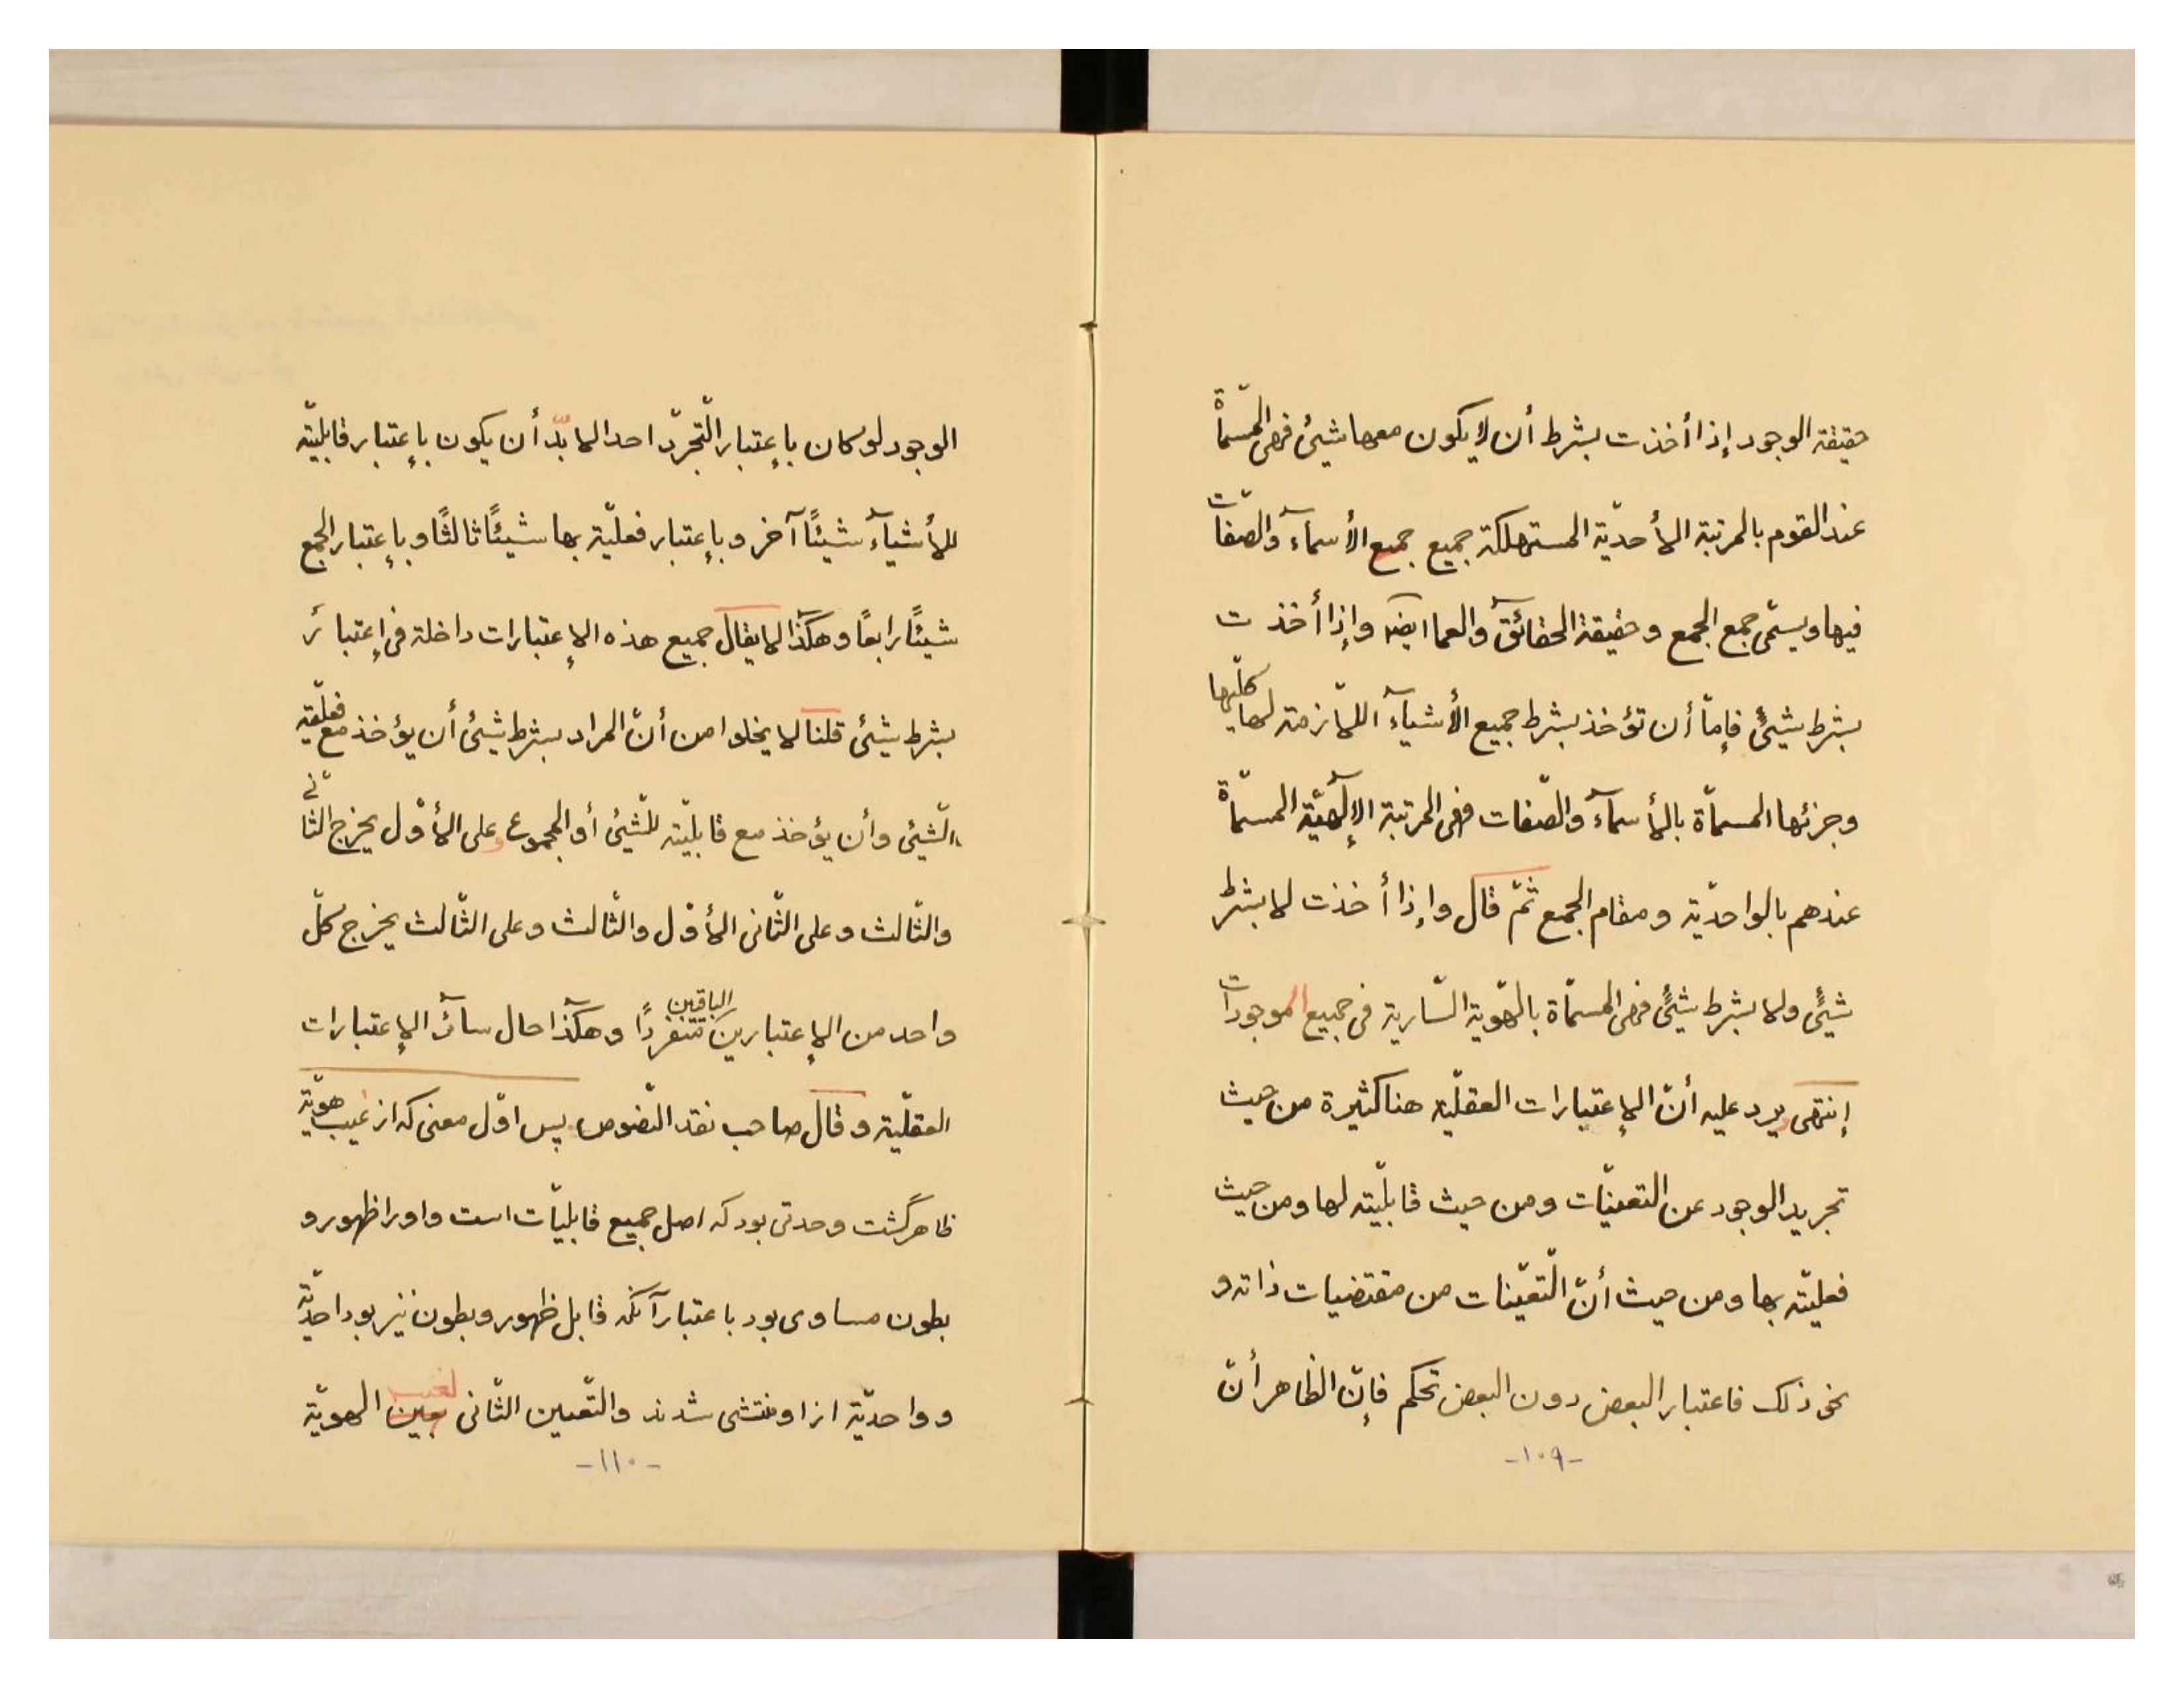 حقيقة الوجود إذا أخذت بشرط أن لا يكون معها شيئ فهى المسمّاة
عند القوم بالمرتبة الأحديّة المستهلكة جميع جميع الأسمآء والصّفات
فيها ويسمّى جمع الجمع وحقيقة الحقآئق والعما ايضه وإذا أخذت
بشرط شيئٍ فإمّا أن تؤخذ بشرط جميع الأشيآء اللّازمة لها كلّيها
وجزئها المسمّاة بالأسمآء والصّفات فهى المرتبة الإلٓهيّة المسمّاة
عندهم بالواحديّة ومقام الجمع ثمّ قال وإذا أخذت لا بشرط
شيئٍ ولا بشرط شيئٍ فهى المسمّاة بالهّوية السّارية فى جميع الموجودات
إنتهى يرد عليه أنّ الإعتبارات العقلّية هنا كثيرة من حيث
تجريد الوجود عن التعينّات ومن حيث قابلّيته لها ومن حيث
فعليّته بها ومن حيث أنّ التّعيّنات من مقتضيات ذاته و
نحو ذلك فاعتبار البعض دون البعض تحكم فإنّ الظاهر أنّ
-١٠٩-
الوجود لو كان بإعتبار التّجرّد احدا لا بدّ أن يكون بإعتبار قابليّته
للأشيآء شيئًا آخر وبإعتبار فعليّته بها شيئًا ثالثًا وبإعتبار الجمع
شيئًا رابعًا وهكٓذا لا يقال جميع هذه الإعتبارات داخلة فى إعتباره
بشرط شيئ قلنا لا يخلوا من أنّ المراد بشرط شيئ أن يؤخذ مع فعلّيّة
الشّيئ وأن يؤخذ مع قابليّته للشّيئ أو المجموع وعلى الأوّل يخرج الثّانى
والثّالث وعلى الثّانى الأوّل والثّالث وعلى الثّالث يخرج كلّ
واحد من الإعتبارين الباقين متفردًا وهكٓذا حال سآئر الإعتبارات
العقلّية وقال صاحب نقد النّصوص پس اوّل معنى كه از غيب هويّة
ظاهر گشت وحدتى بود كه اصل جميع قابليّات است واورا ظهور و
بطون مساوى بود باعتبار آنكه قابل ظهور وبطون نيز بود احديّة
وواحديّة ازاو منتشى شدند والتّعين الثّانى الهويّة
-١١٠-